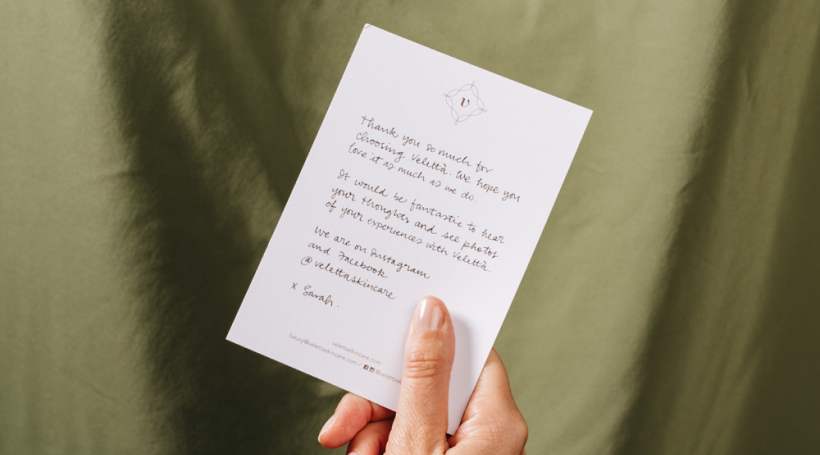 v
Thank you so much for
choosing Veletta. We hope you
love it as much as we do.
It would be fantastic to hear
your thoughts and see photos
of your experiences with Veletta.
We are on Instagram
and Facebook
@velettaskincare
x Sarah.
velettaskincare.com
luxury@velettaskincare.com /